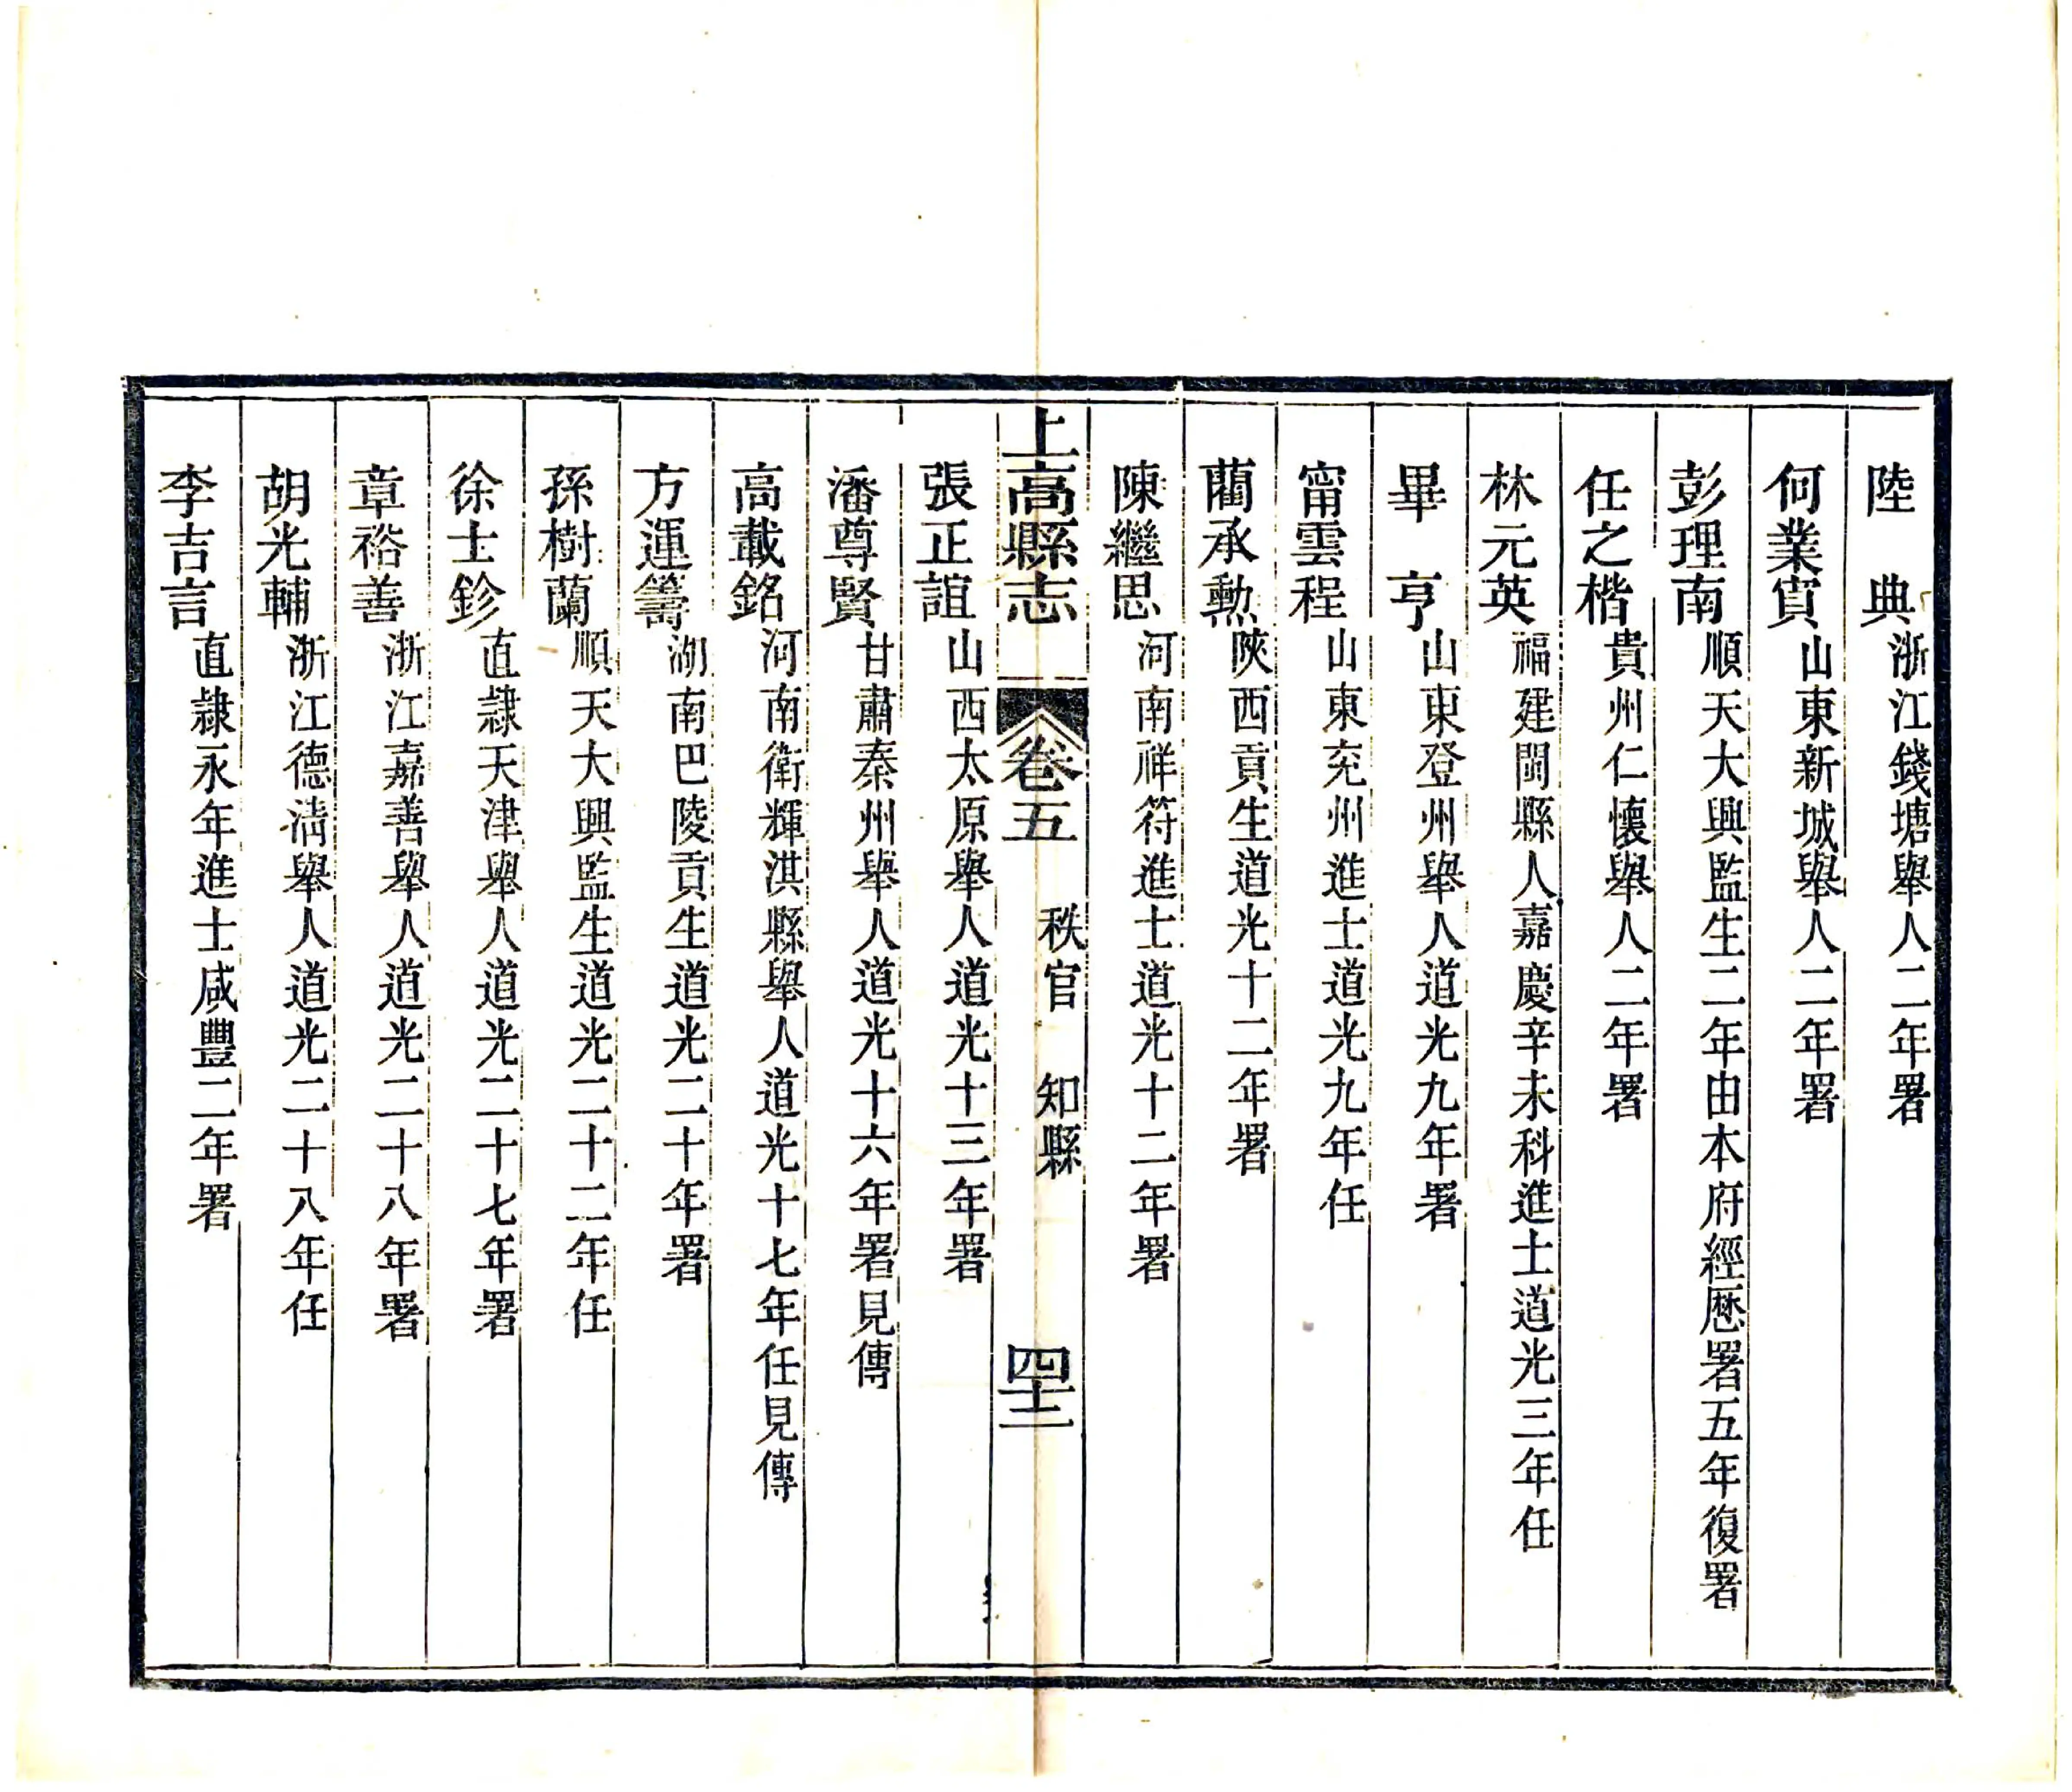 陸典浙江錢塘舉人二年署
何業賓山東新城舉人二年署
彭理南順天大興監生二年由本府經厯署五年復署
任之楷貴州仁懷舉人二年署
林元英福建閩縣人嘉慶辛未科進士道光三年任
畢亨山東登州舉人道光九年署
甯雲程山東兖州進士道光九年任
藺承勲陝西貢生道光十二年署
陳繼思河南祥符進士道光十二年署
上高縣志 卷五 秩官 知縣 四十二
張正誼山西太原舉人道光十三年署
潘尊賢甘肅秦州舉人道光十六年署見傳
高載銘河南衛輝淇縣舉人道光十七年任見傳
方運籌湖南巴陵貢生道光二十年署
孫樹蘭順天大興監生道光二十二年任
徐士鉁直隷天津舉人道光二十七年署
章裕善浙江嘉善舉人道光二十八年署
胡光輔浙江德清舉人道光二十八年任
李吉言直隷永年進士咸豐二年署